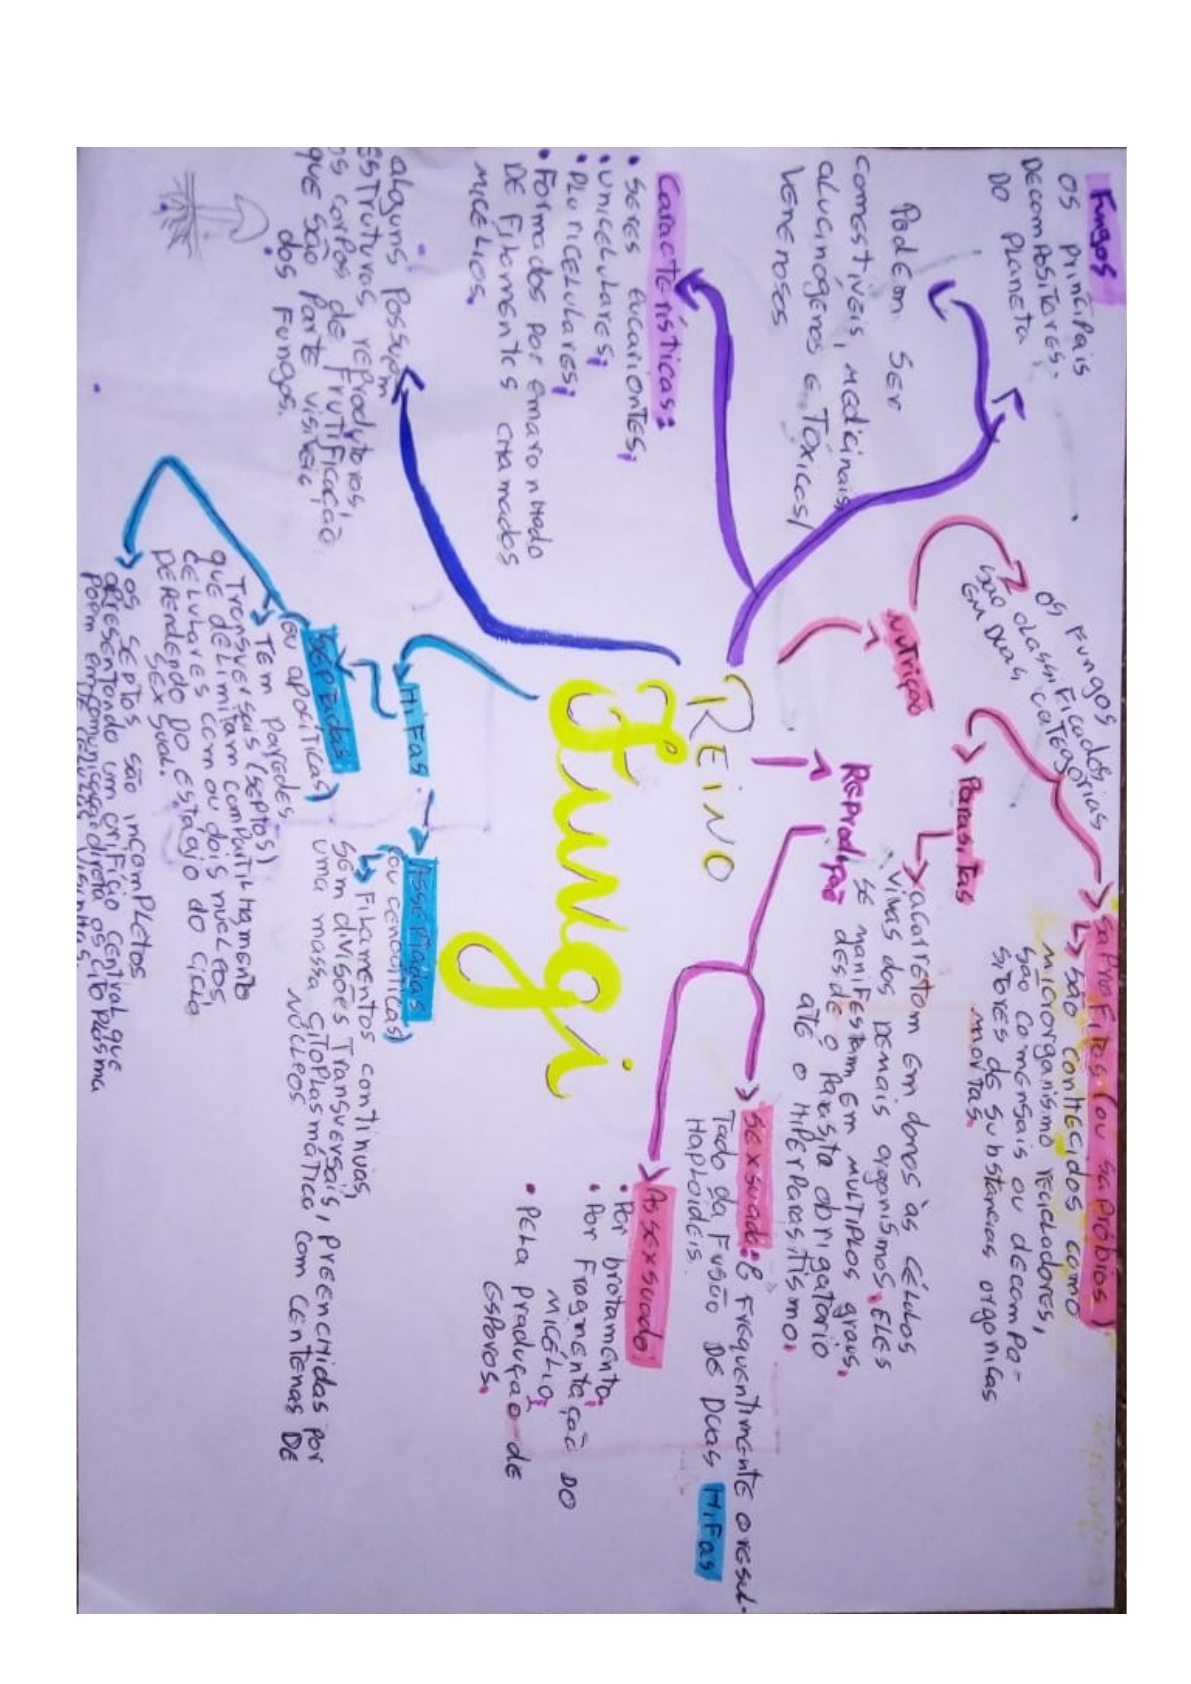 Fungos
OS PRINCIPAIS
DECOMPOSITORES.
DO PLANETA
PODEM SER
COMESTÍVEIS, MEDICINAIS,
ALUCINÓGENOS E TÓXICOS/
VENENOSOS
Características:
• SERES EUCARIONTES;
• UNICELULARES;
• PLURICELULARES;
• FORMADOS POR EMARONHADO
DE FILOMENTES CHAMADOS
MICÉLIOS.
Alguns POSSUEM
ESTRUTURAS REPRODUTORAS,
OS CORPOS DE FRUTIFICAÇÃO
QUE SÃO PARTE VISÍVEIS
DOS FUNGOS.
REINO
Fungi
Nutrição
OS FUNGOS
SÃO CLASSIFICADOS
EM DUAS CATEGORIAS
SAPROFITOS (OU SAPRÓBIOS)
SÃO CONHECIDOS COMO
MICIORGANISMO RECICLADORES,
SÃO COMENSAIS OU DECOMPO-
SITORES DE SUBSTANCIAS ORGONICAS
MORTAS.
Parasitas
ACARRETAM EM DANOS ÀS CÉLULAS
VIVAS DOS DEMAIS ORGANISMOS. ELES
SE MANIFESTAM EM MULTIPLOS GRAUS,
DESDE O PARASITA OBRIGATÓRIO
ATÉ O HIPERPARASITISMO.
REPRODUÇÃO
SEXSUADA: É FREQUENTIMENTE O RESUL-
TADO DA FUSÃO DE DUAS HIFAS
HAPLOIDEIS.
ASSEXSUADO:
• POR BROTAMENTO;
• POR FRAGMENTAÇÃO DO
MICÉLIO;
• PELA PRADUÇAO DE
ESPOROS.
HIFAS
ASSEPTADAS
(OU CENOCÍTICAS)
FILAMENTOS CONTINUAS,
SEM DIVISÕES TRANSVERSAIS, PREENCHIDAS POR
UMA MASSA CITOPLASMÁTICA COM CENTENAS DE
NÚCLEOS
SEPTADAS
(OU APOCÍTICAS)
TEM PAREDES
TRANSVERSAIS (SEPTOS)
QUE DELIMITAM COMPARTILHAMENTO
CELULARES COM OU DOIS NUCLEOS,
DEPENDENDO DO ESTÁGIO DO CICLO
SEXSUAL.
OS SEPTOS SÃO INCOMPLETOS
APRESENTANDO UM ORIFÍCIO CENTRAL QUE
POEM EM COMUNICAÇÃO DIRETA OS CITOPLASMA
DE CÉLULAS VISINHAS.